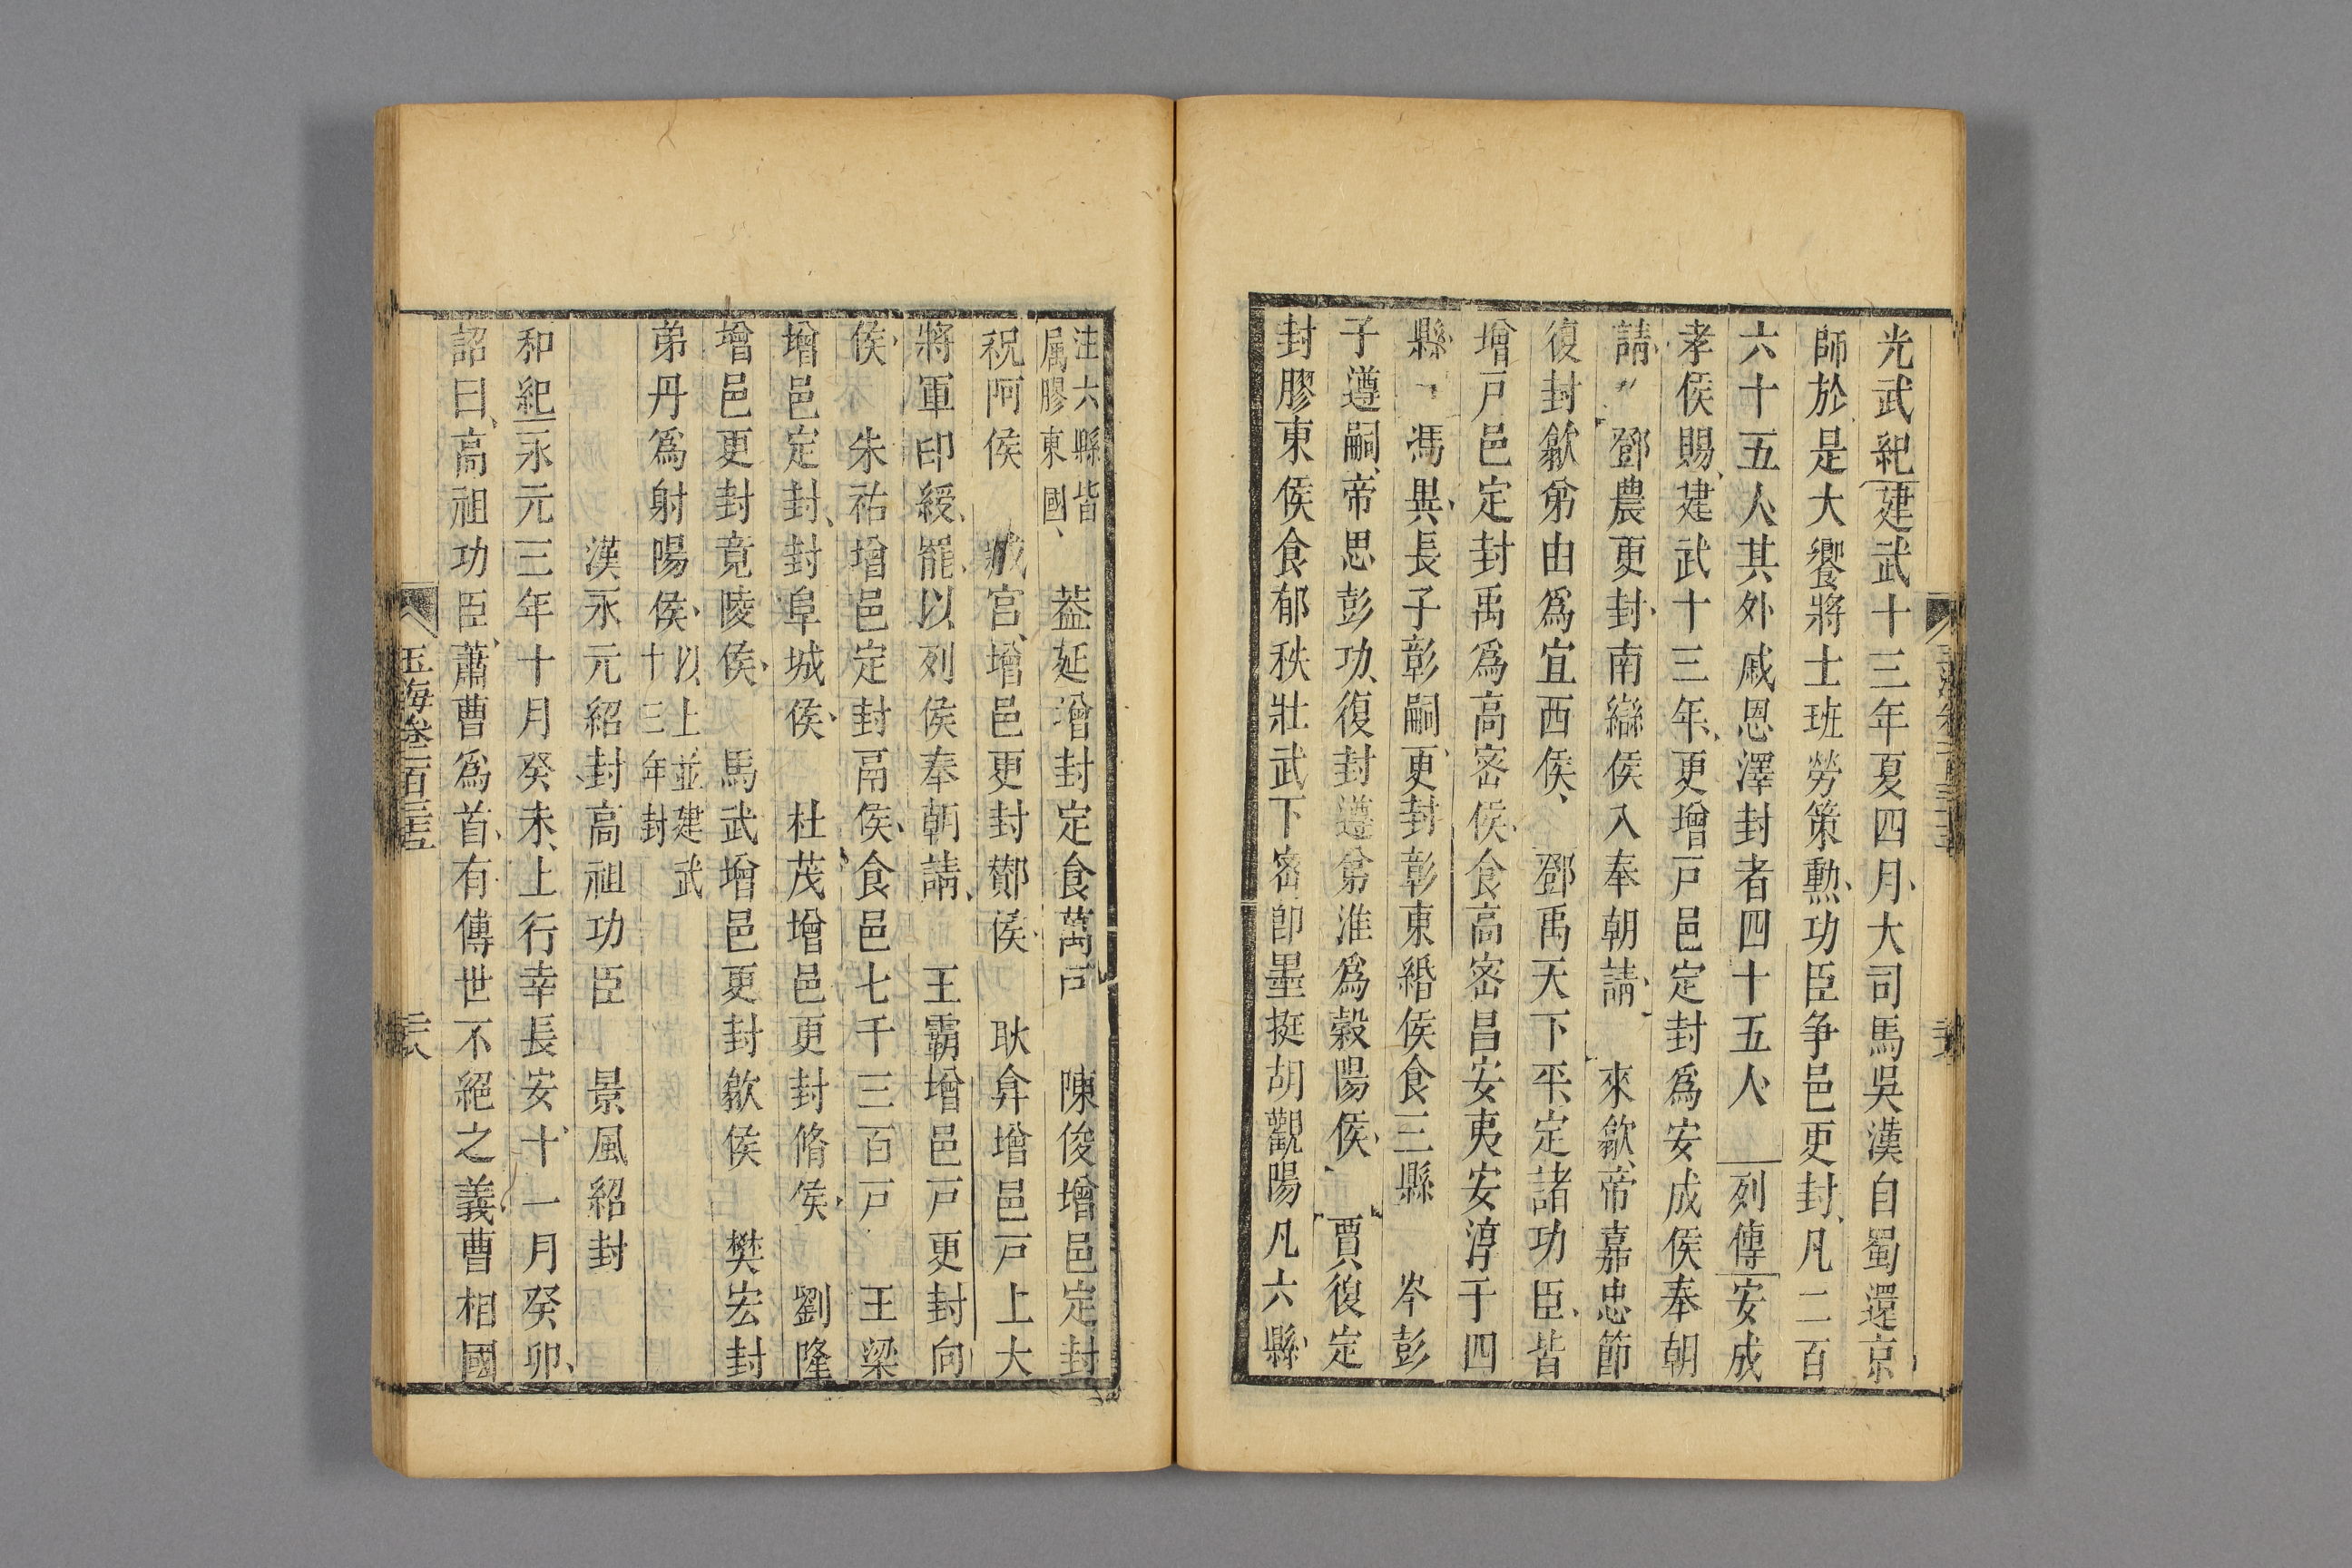 光武紀建武十三年夏四月大司馬吳漢自蜀還京
師於是大饗將士班勞策勳功臣争邑更封凡二百
六十五人其外戚恩澤封者四十五人 列傳安成
孝侯賜建武十三年更增戸邑定封爲安成侯奉朝
請 鄧農更封南䜌侯入奉朝請 來歙帝嘉忠節
復封歙弟由爲宜西侯 鄧禹天下平定諸功臣皆
增戸邑定封禹爲高密侯食高密昌安夷安淳于四
縣 馮異長子彰嗣更封彰東緡侯食三縣 岑彭
子遵嗣帝思彭功復封遵弟淮爲榖陽侯 賈復定
封膠東侯食郁秩壯武下密卽墨挺胡觀陽凡六縣
注六縣皆
属膠東國
葢延增封定食萬戸 陳俊增邑定封
祝阿侯 臧宮增邑更封酇侯 耿弇增邑戸上大
將軍印綬罷以列侯奉朝請 王霸增邑戸更封向
侯 朱祐增邑定封鬲侯食邑七千三百戸 王梁
增邑定封封阜城侯 杜茂增邑更封脩侯 劉隆
增邑更封竟陵侯 馬武增邑更封歙侯 樊宏封
弟丹爲射陽侯
以上並建武
十三年封
漢永元紹封高祖功臣 景風紹封
和紀永元三年十月癸未上行幸長安十一月癸卯
詔曰高祖功臣蕭曹爲首有傳世不絕之義曹相國
玉海卷一百三十五